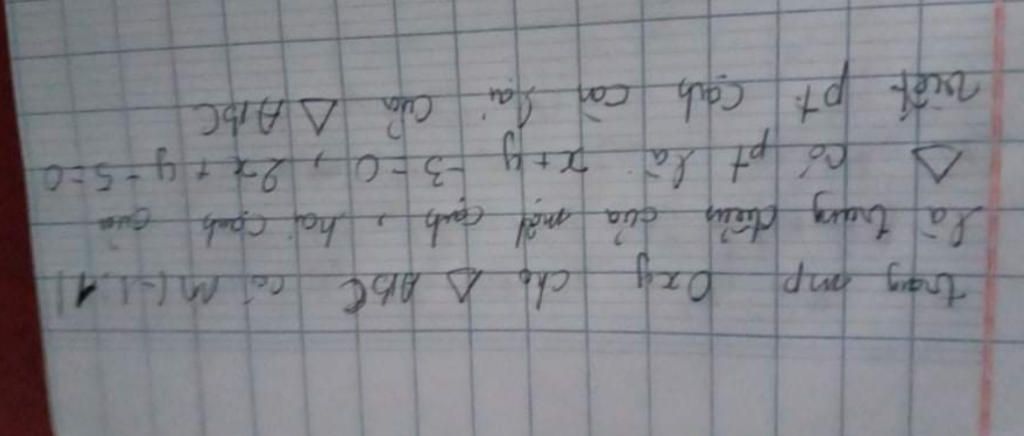 trong mp Oxy cho △ ABC có M(-1,1)
là trung điểm của một cạnh, hai cạnh của
△ có pt là x+y-3=0, 2x+y-5=0
viết pt cạnh còn lại của △ ABC